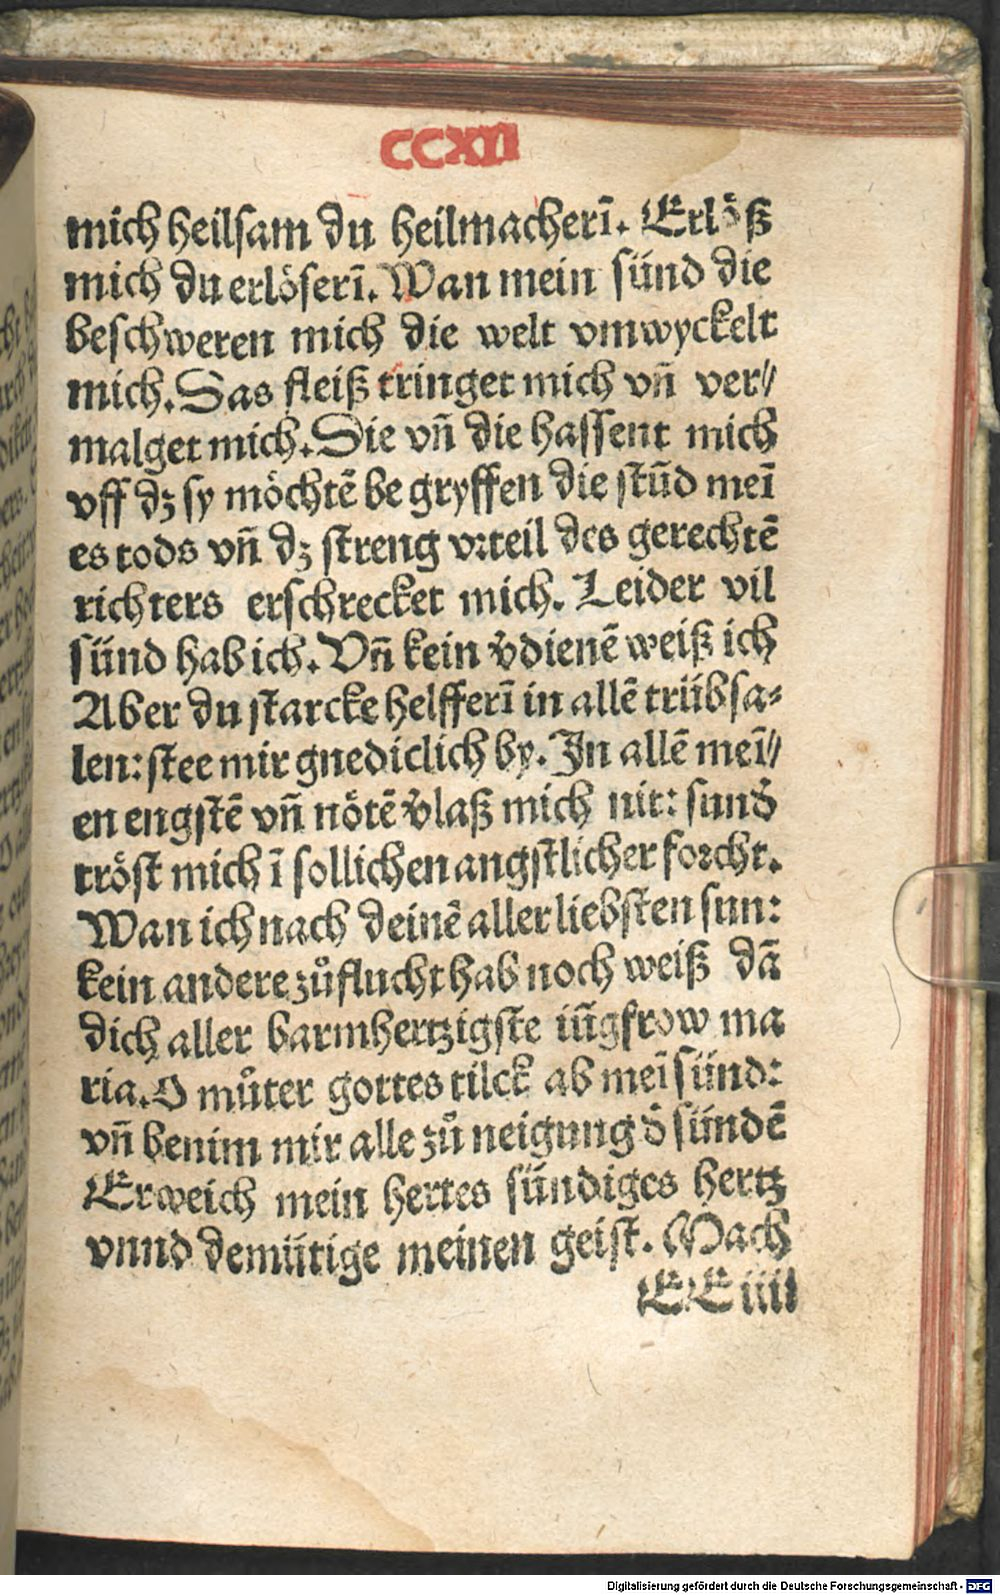 CCXII
mich heilsam du heilmacherī. Erlöß
mich du erlöserī. Wan mein sünd die
beschweren mich die welt vmwyckelt
mich. Das fleiß tringet mich vn̄ ver⸗
malget mich. Die vn̄ die hassent mich
vff dz sy möchtē be gryffen die stūd meī
es tods vn̄ dz streng vrteil des gerechtē
richters erschrecket mich. Leider vil
sünd hab ich. Vn̄ kein v̓dienē weiß ich
Aber du starcke helfferī in allē trübsa⸗
len: stee mir gnediclich by. In allē meī⸗
en engstē vn̄ nötē v̓laß mich nit: sund̓
tröst mich ī sollichen angstlicher forcht.
Wan ich nach deinē aller liebsten sun:
kein andere zůflucht hab noch weiß dā
dich aller barmhertzigste iūgfrow ma
ria. O můter gottes tilck ab meī sünd:
vn̄ benim mir alle zů neigung d̓ sündē
Erweich mein hertes sündiges hertz
vnnd demütige meinen geist. Mach
EE iiii
Digitalisierung gefördert durch die Deutsche Forschungsgemeinschaft - DFG